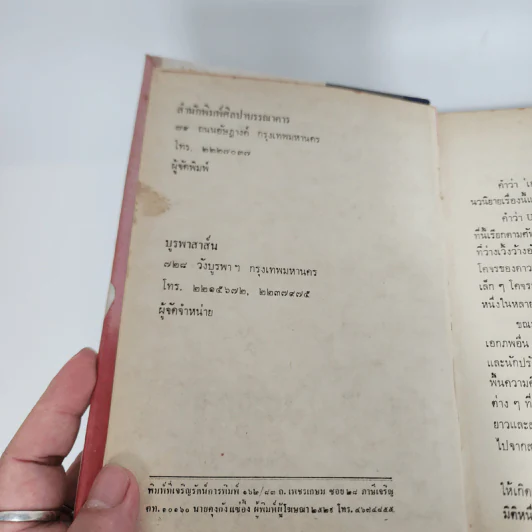 สำนักพิมพ์ศิลปาบรรณาคาร
๓๑ ถนนอัษฎางค์ กรุงเทพมหานคร
โทร. ๒๒๒๗๐๓๗
ผู้จัดพิมพ์
บูรพาสาส์น
๗๒๘ วังบูรพา ฯ กรุงเทพมหานคร
โทร. ๒๒๑๕๖๗๒, ๒๒๓๗๙๗๕
ผู้จัดจำหน่าย
พิมพ์ที่เจริญรัตน์การพิมพ์ ๑๖๒/๘๓ ถ. เพชรเกษม ซอย ๒๘ ภาษีเจริญ
กท. ๑๐๑๖๐ ผู้พิมพ์ผู้โฆษณา ๒๕๒๙ โทร.
คำว่า
นวนิยายเรื่องนี้
คำว่า
ที่นี้เรียกตาม
ที่ว่างเวิ้งว้าง
โคจรของดาว
เล็ก ๆ โคจร
หนึ่งในหลาย
ขณ
เอกภพอื่น
และนักปร
พื้นความ
ต่าง ๆ ที่
ยาวและ
ไปจาก
ให้เกิด
มิติหน